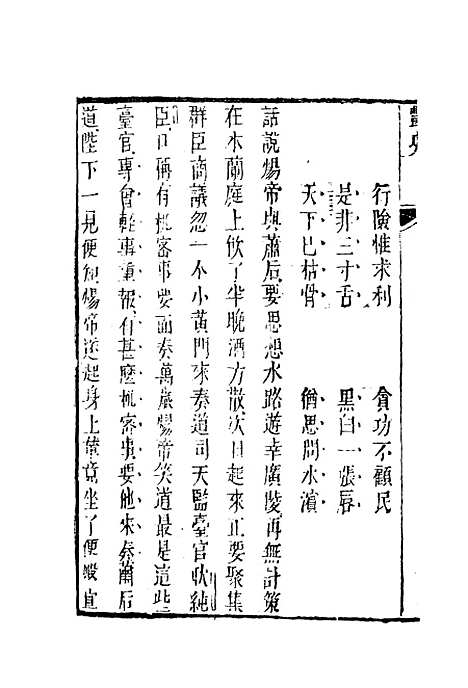 豔史
行險惟求利　貪功不顧民
是非三寸舌　黑白一張唇
天下已枯骨　猶思問水濱
話說煬帝與蕭后要思想水路遊幸廣陵再無計策
在木蘭庭上飲了半晚酒方散次日起來正要聚集
群臣商議忽一个小黃門來奏道司天監臺官耿純
臣口稱有機密事要面奏萬歲煬帝笑道最是這些
臺官專會輕事重報有甚麼機密事要他來奏蕭后
道陛下一見便知煬帝遂起身上輦竟坐了便殿宣